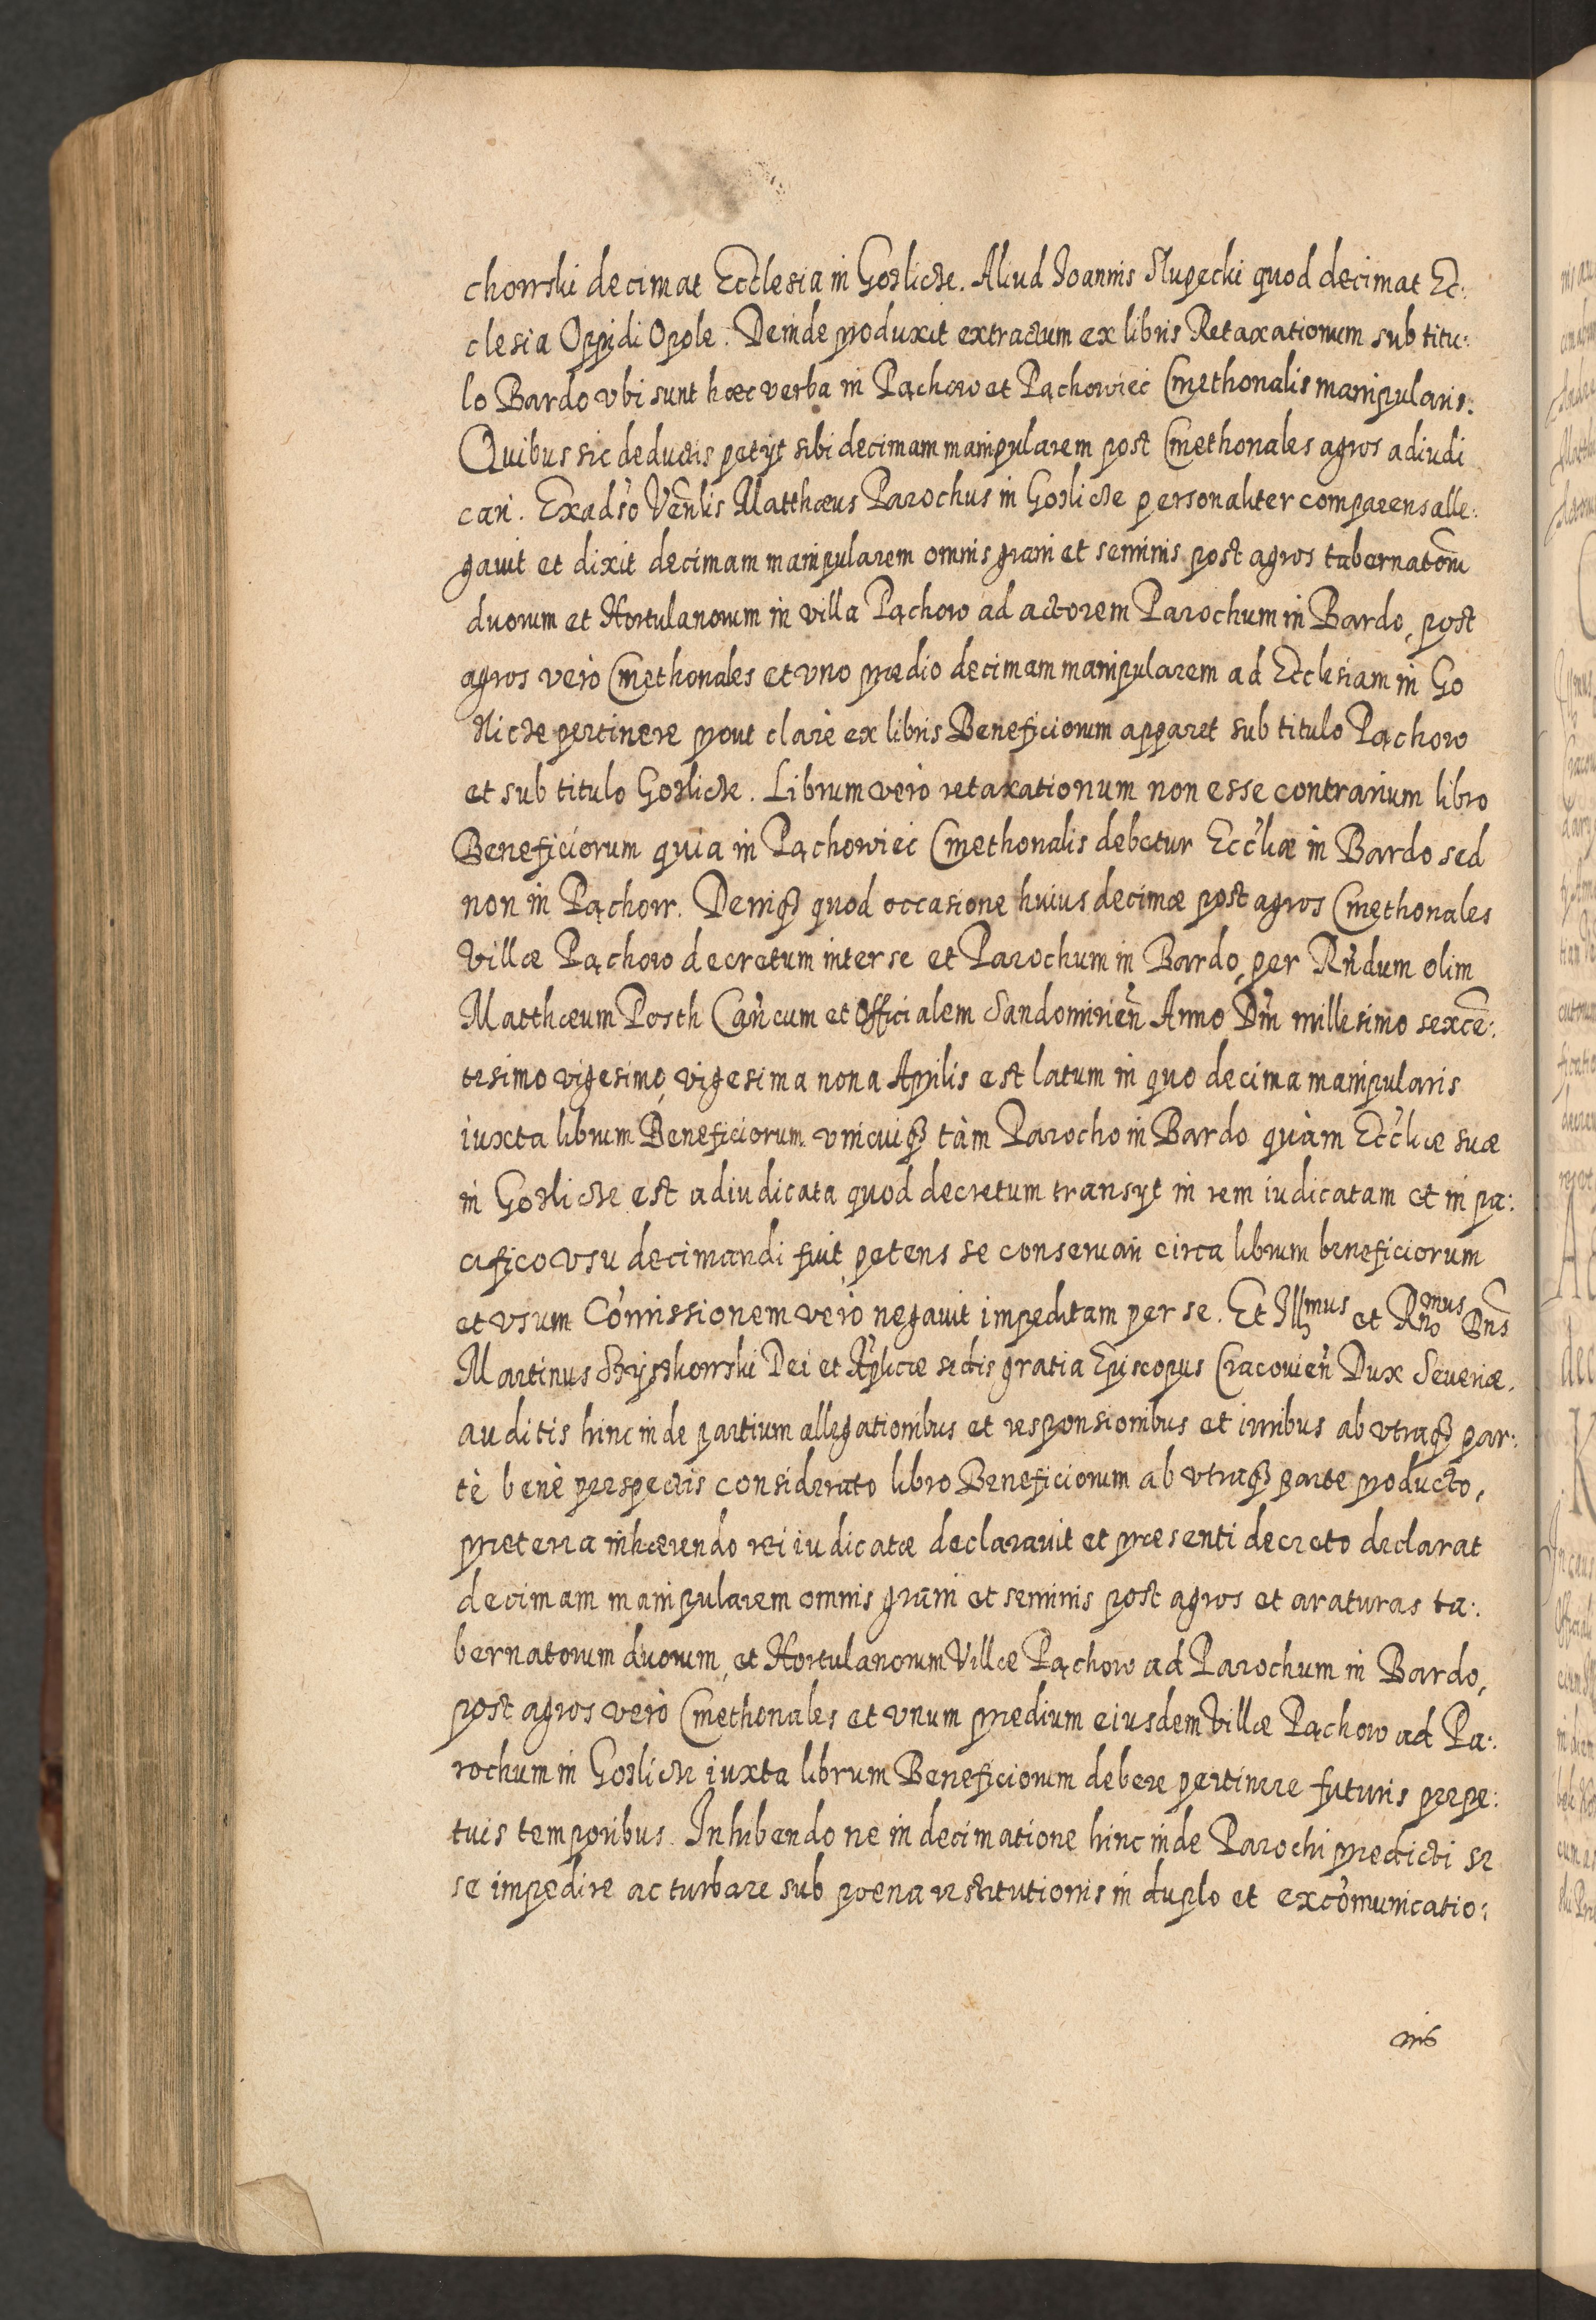 chowski decimat Ecclesia in Gozlicze. Aliud Joannis Słupecki quod decimat Ec:
clesia Oppidi Opole. Deinde produxit extractum ex libris Retaxationum sub titu:
lo Bardo vbi sunt hæc verba in Pąchow et Pąchowiec Cmethonalis manipularis.
Quibus sic deductis petijt sibi decimam manipularem post Cmethonales agros adiudi
cari. Ex adůso Ven̄lis Matthæus Parochus in Gozlicze personaliter comparens alle:
gauit et dixit decimam manipularem omnis grani et seminis post agros tabernator̄u
duorum et Hortulanorum in villa Pąchow ad actorem Parochum in Bardo, post
agros verò Cmethonales et vno prædio decimam manipularem ad Ecclesiam in Go
zlicze pertinere prout clarè ex libris Beneficiorum apparet sub titulo Pąchow
et sub titulo Gozlicze. Librum verò retaxationum non esse contrarium libro
Beneficiorum quia in Pąchowiec Cmethonalis debetur Ecc͠liæ in Bardo sed
non in Pąchow. Deniqȝ quod occasione huius decimæ post agros Cmethonales
Villæ Pąchow decretum inter se et Parochum in Bardo, per Rn̄dum olim
Matthæum Posth Can̄cum et Officialem Sandomirien̄ Anno Dn̄i millesimo sexcē:
tesimo vigesimo, vigesima nona Aprilis est latum in quo decima manipularis
iuxta librum Beneficiorum vnicuiqȝ tàm Parocho in Bardo quàm Ecc͠liæ suæ
in Gozlicze est adiudicata quod decretum transijt in rem iudicatam et in pa:
cifico vsu decimandi fuit, petens se conseruari circa librum beneficiorum
et vsum Com̄issionem verò negauit impeditam per se. Et Illmus et Rn̄omus Dn̄s
Martinus Szyszkowski Dei et Ap͠licæ sedis gratia Episcopus Cracouien̄ Dux Seueriæ.
auditis hinc inde partium allegationibus et responsionibus et iuribus ab vtraqȝ par:
tè benè perspectis considerato libro Beneficiorum ab vtraqȝ parte producto,
preterea inhærendo rei iudicatæ declarauit et præsenti decreto declarat
decimam manipularem omnis grani et seminis post agros et araturas ta:
bernatorum duorum, et Hortulanorum Villæ Pąchow ad Parochum in Bardo,
post agros verò Cmethonales et vnum predium eiusdem Villæ Pąchow ad Pa:
rochum in Gozlicze iuxta librum Beneficiorum debere pertinere futuris perpe:
tuis temporibus. Inhibendo ne in decimatione hinc inde Parochi predicti se
se impedire ac turbare sub poena restitutionis in duplo et excom̄unicatio:
nis